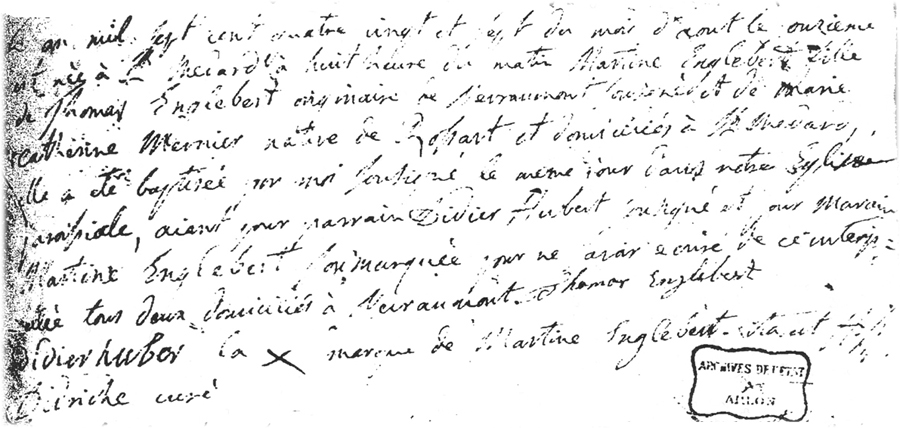 L'an mil sept cent quatre vingt et sept du mois d'aout le onzieme
est née à St Medard à huit heure du matin Martine Englebert fille
de Thomas Englebert originaire de Nevraumont et de Marie
catherine Mernier native de et domiciliés à St Medard,
elle a été baptisée par moi soussigné le même jour dans notre Eglise
paroissiale, aiant pour parrain Didier Hubert soussigné et pour Maraine
Martine Englebert soumarquée pour ne avoir ecrire de ce
tous deux domiciliés à Nevraumont. Thomas Englebert
Didier huber la x marque de Martine Englebert
curé
ARCHIVES DE L'ETAT
A
ARLON